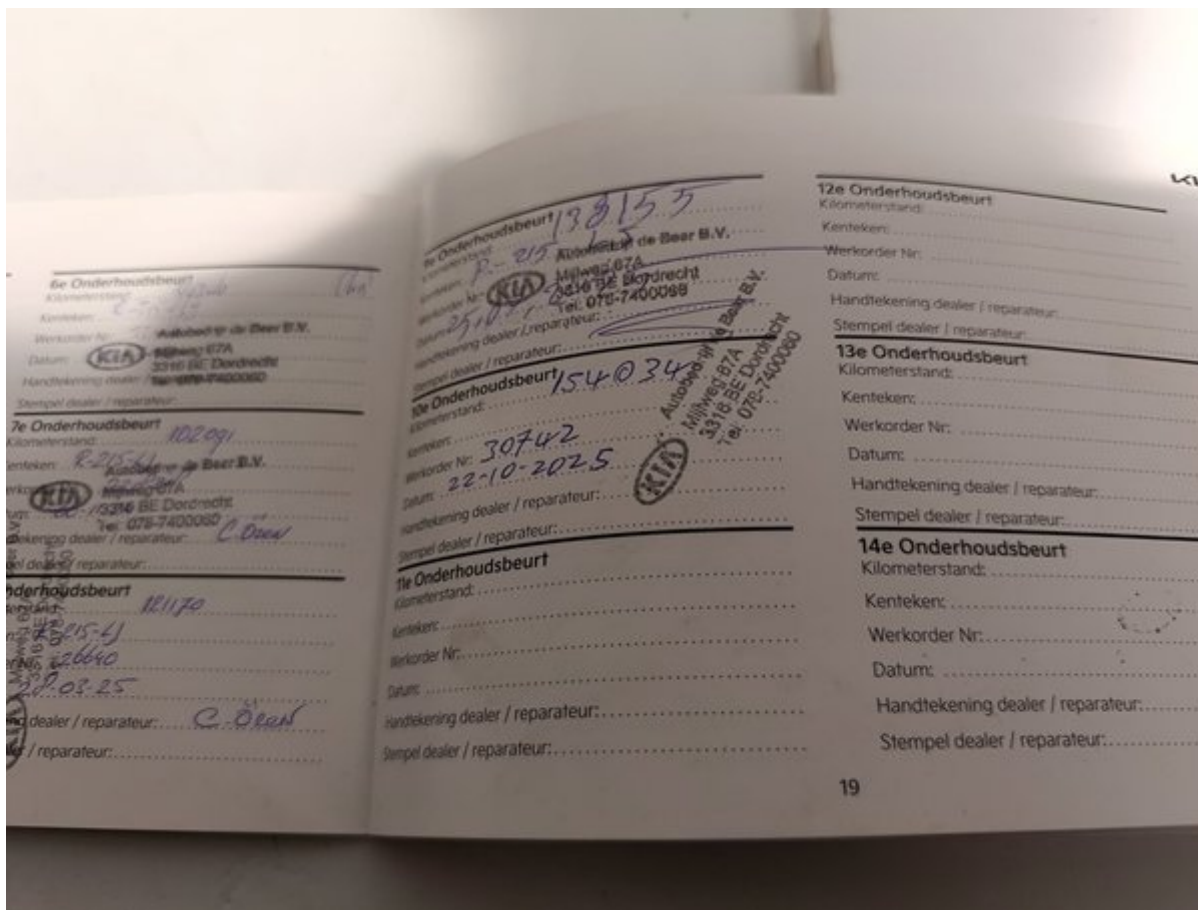 6e Onderhoudsbeurt
Kilometerstand:
Kenteken:
Werkorder Nr:
Autobedrijf de Beer B.V.
Datum:
KIA
Mijlweg 67A
3316 BE Dordrecht
Handtekening dealer /
Tel. 078-7400060
Stempel dealer / reparateur:
7e Onderhoudsbeurt
Kilometerstand: 102091
Kenteken: R-215-
Autobedrijf de Beer B.V.
KIA
Mijlweg 67A
3316 BE Dordrecht
Tel. 078-7400060
dealer / reparateur: C. Ören
dealer / reparateur:
nderhoudsbeurt
121170
215-LJ
26640
28-03-25
dealer / reparateur: C. Ören
/ reparateur:
9e Onderhoudsbeurt 138155
Kilometerstand:
Kenteken: R-215-LJ
Autobedrijf de Beer B.V.
Werkorder Nr:
KIA
Mijlweg 67A
3316 BE Dordrecht
Datum:
Tel. 078-7400060
Handtekening dealer / reparateur:
Stempel dealer / reparateur:
10e Onderhoudsbeurt 154034
Kilometerstand:
Kenteken:
Werkorder Nr: 30742
Datum: 22-10-2025
Handtekening dealer / reparateur:
Stempel dealer / reparateur:
KIA
Autobedrijf de Beer B.V.
Mijlweg 67A
3316 BE Dordrecht
Tel. 078-7400060
11e Onderhoudsbeurt
Kilometerstand:
Kenteken:
Werkorder Nr:
Datum:
Handtekening dealer / reparateur:
Stempel dealer / reparateur:
12e Onderhoudsbeurt
Kilometerstand:
Kenteken:
Werkorder Nr:
Datum:
Handtekening dealer / reparateur:
Stempel dealer / reparateur:
13e Onderhoudsbeurt
Kilometerstand:
Kenteken:
Werkorder Nr:
Datum:
Handtekening dealer / reparateur:
Stempel dealer / reparateur:
14e Onderhoudsbeurt
Kilometerstand:
Kenteken:
Werkorder Nr:
Datum:
Handtekening dealer / reparateur:
Stempel dealer / reparateur:
19